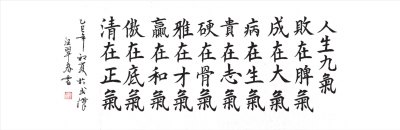 人生九氣
敗在脾氣
成在大氣
病在生氣
貴在志氣
硬在骨氣
雅在才氣
贏在和氣
傲在底氣
清在正氣
乙巳年初夏於武漢